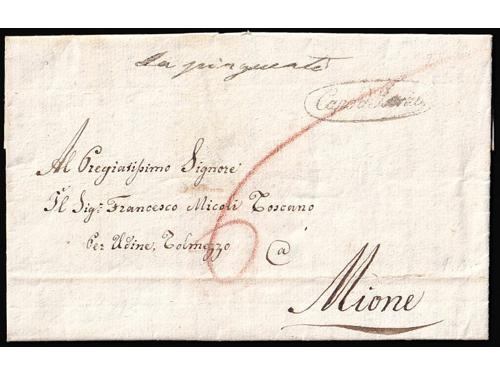 Da pinguente
Capo d'Istria
Al Pregiatissimo Signore
Il Sig: Francesco Micoli Toscano
Per Udine, Tolmezzo
a
Mione
6